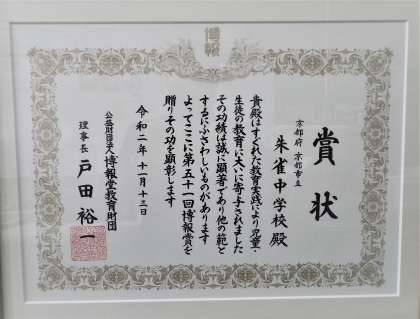 博報
賞状
京都府 京都市立
朱雀中学校殿
貴殿はすぐれた教育実践により児童・
生徒の教育に大いに寄与されました
その功績は誠に顕著であり他の範と
するにふさわしいものがあります
よってここに第五十一回博報賞を
贈りその功を顕彰します
令和二年十一月十三日
公益財団法人 博報堂教育財団
理事長 戸田裕一